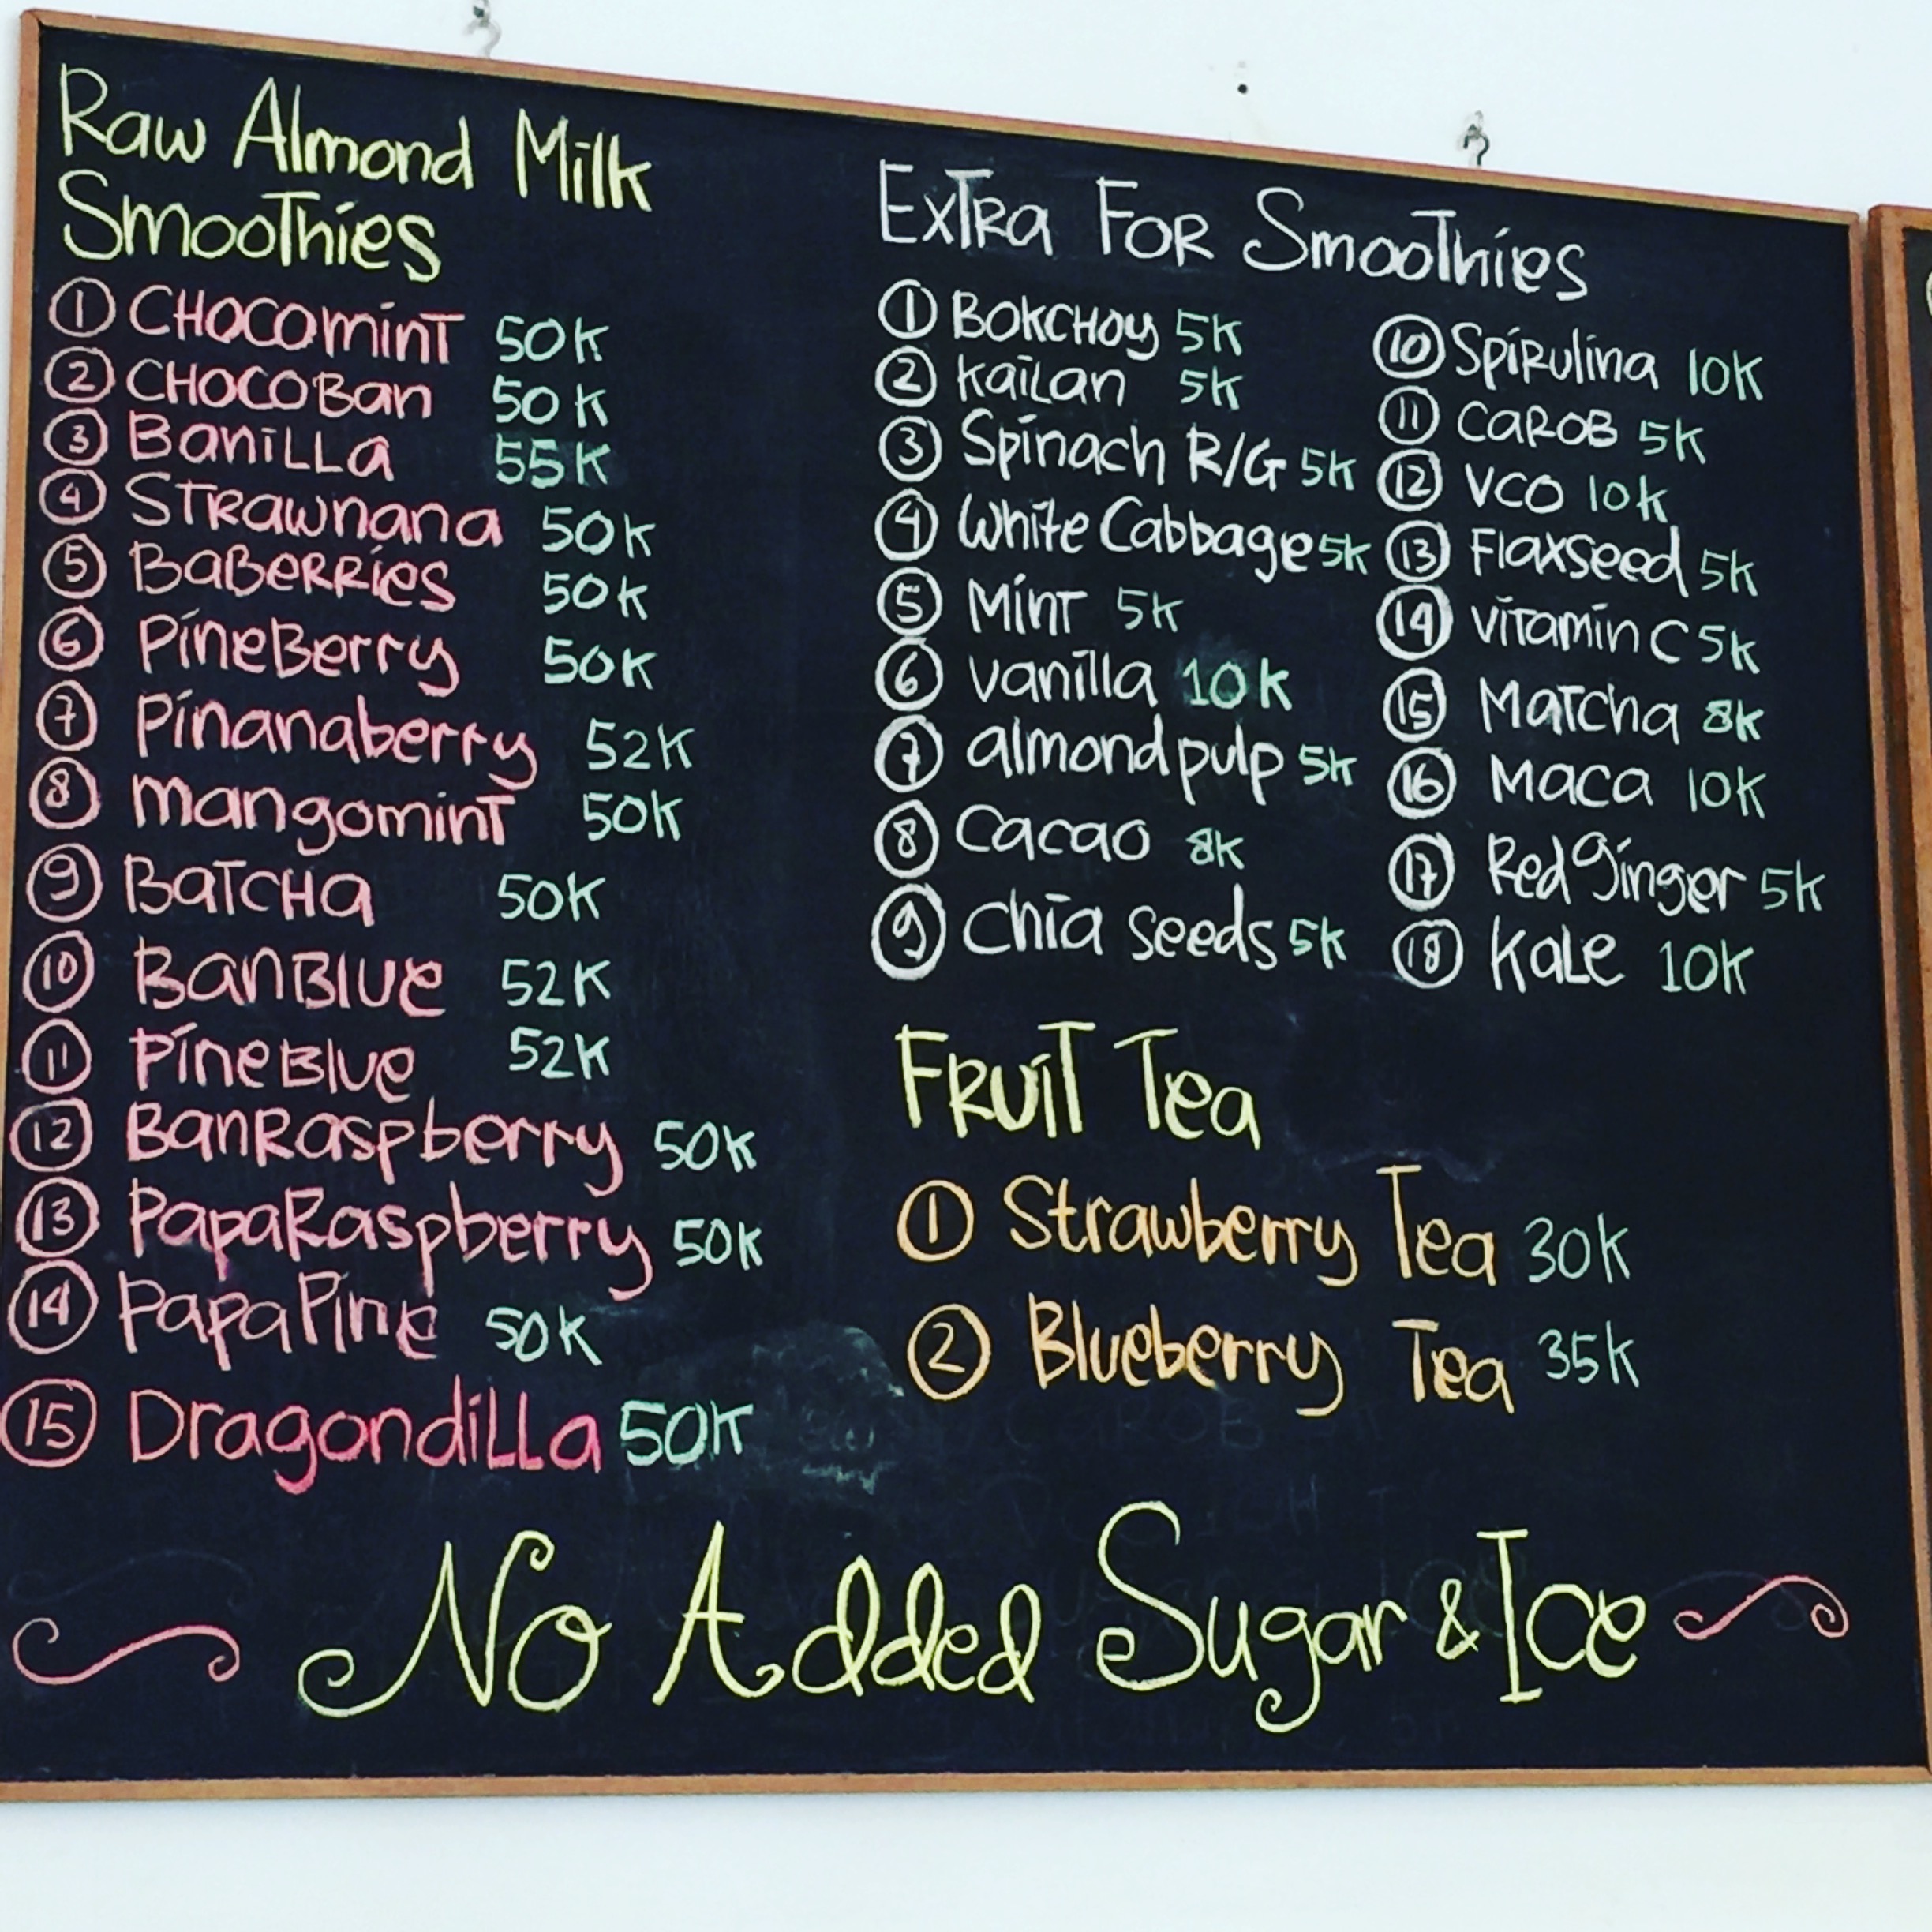 Raw Almond Milk
Smoothies
1 CHOCOminT 50K
2 CHOCOBan 50K
3 BaniLLa 55K
4 STRawnana 50K
5 BaBeRRies 50K
6 PineBerry 50K
7 Pinanaberry 52K
8 mangominT 50K
9 BaTCHa 50K
10 BanBlue 52K
11 PineBlue 52K
12 BanRaspberry 50K
13 PapaRaspberry 50K
14 PapaPine 50K
15 DragondiLLa 50K
ExTRa FOR SmooThies
1 BOKCHOy 5K
2 kaiLan 5K
3 Spinach R/G 5K
4 White Cabbage 5K
5 MinT 5K
6 vanilla 10K
7 almond pulp 5K
8 Cacao 8K
9 Chia seeds 5K
10 SpiRulina 10K
11 CaROB 5K
12 VCO 10K
13 Flaxseed 5K
14 viTamin C 5K
15 MaTcha 8K
16 Maca 10K
17 Red ginger 5K
18 KaLe 10K
FRuiT Tea
1 Strawberry Tea 30K
2 Blueberry Tea 35K
No Added Sugar & Ice